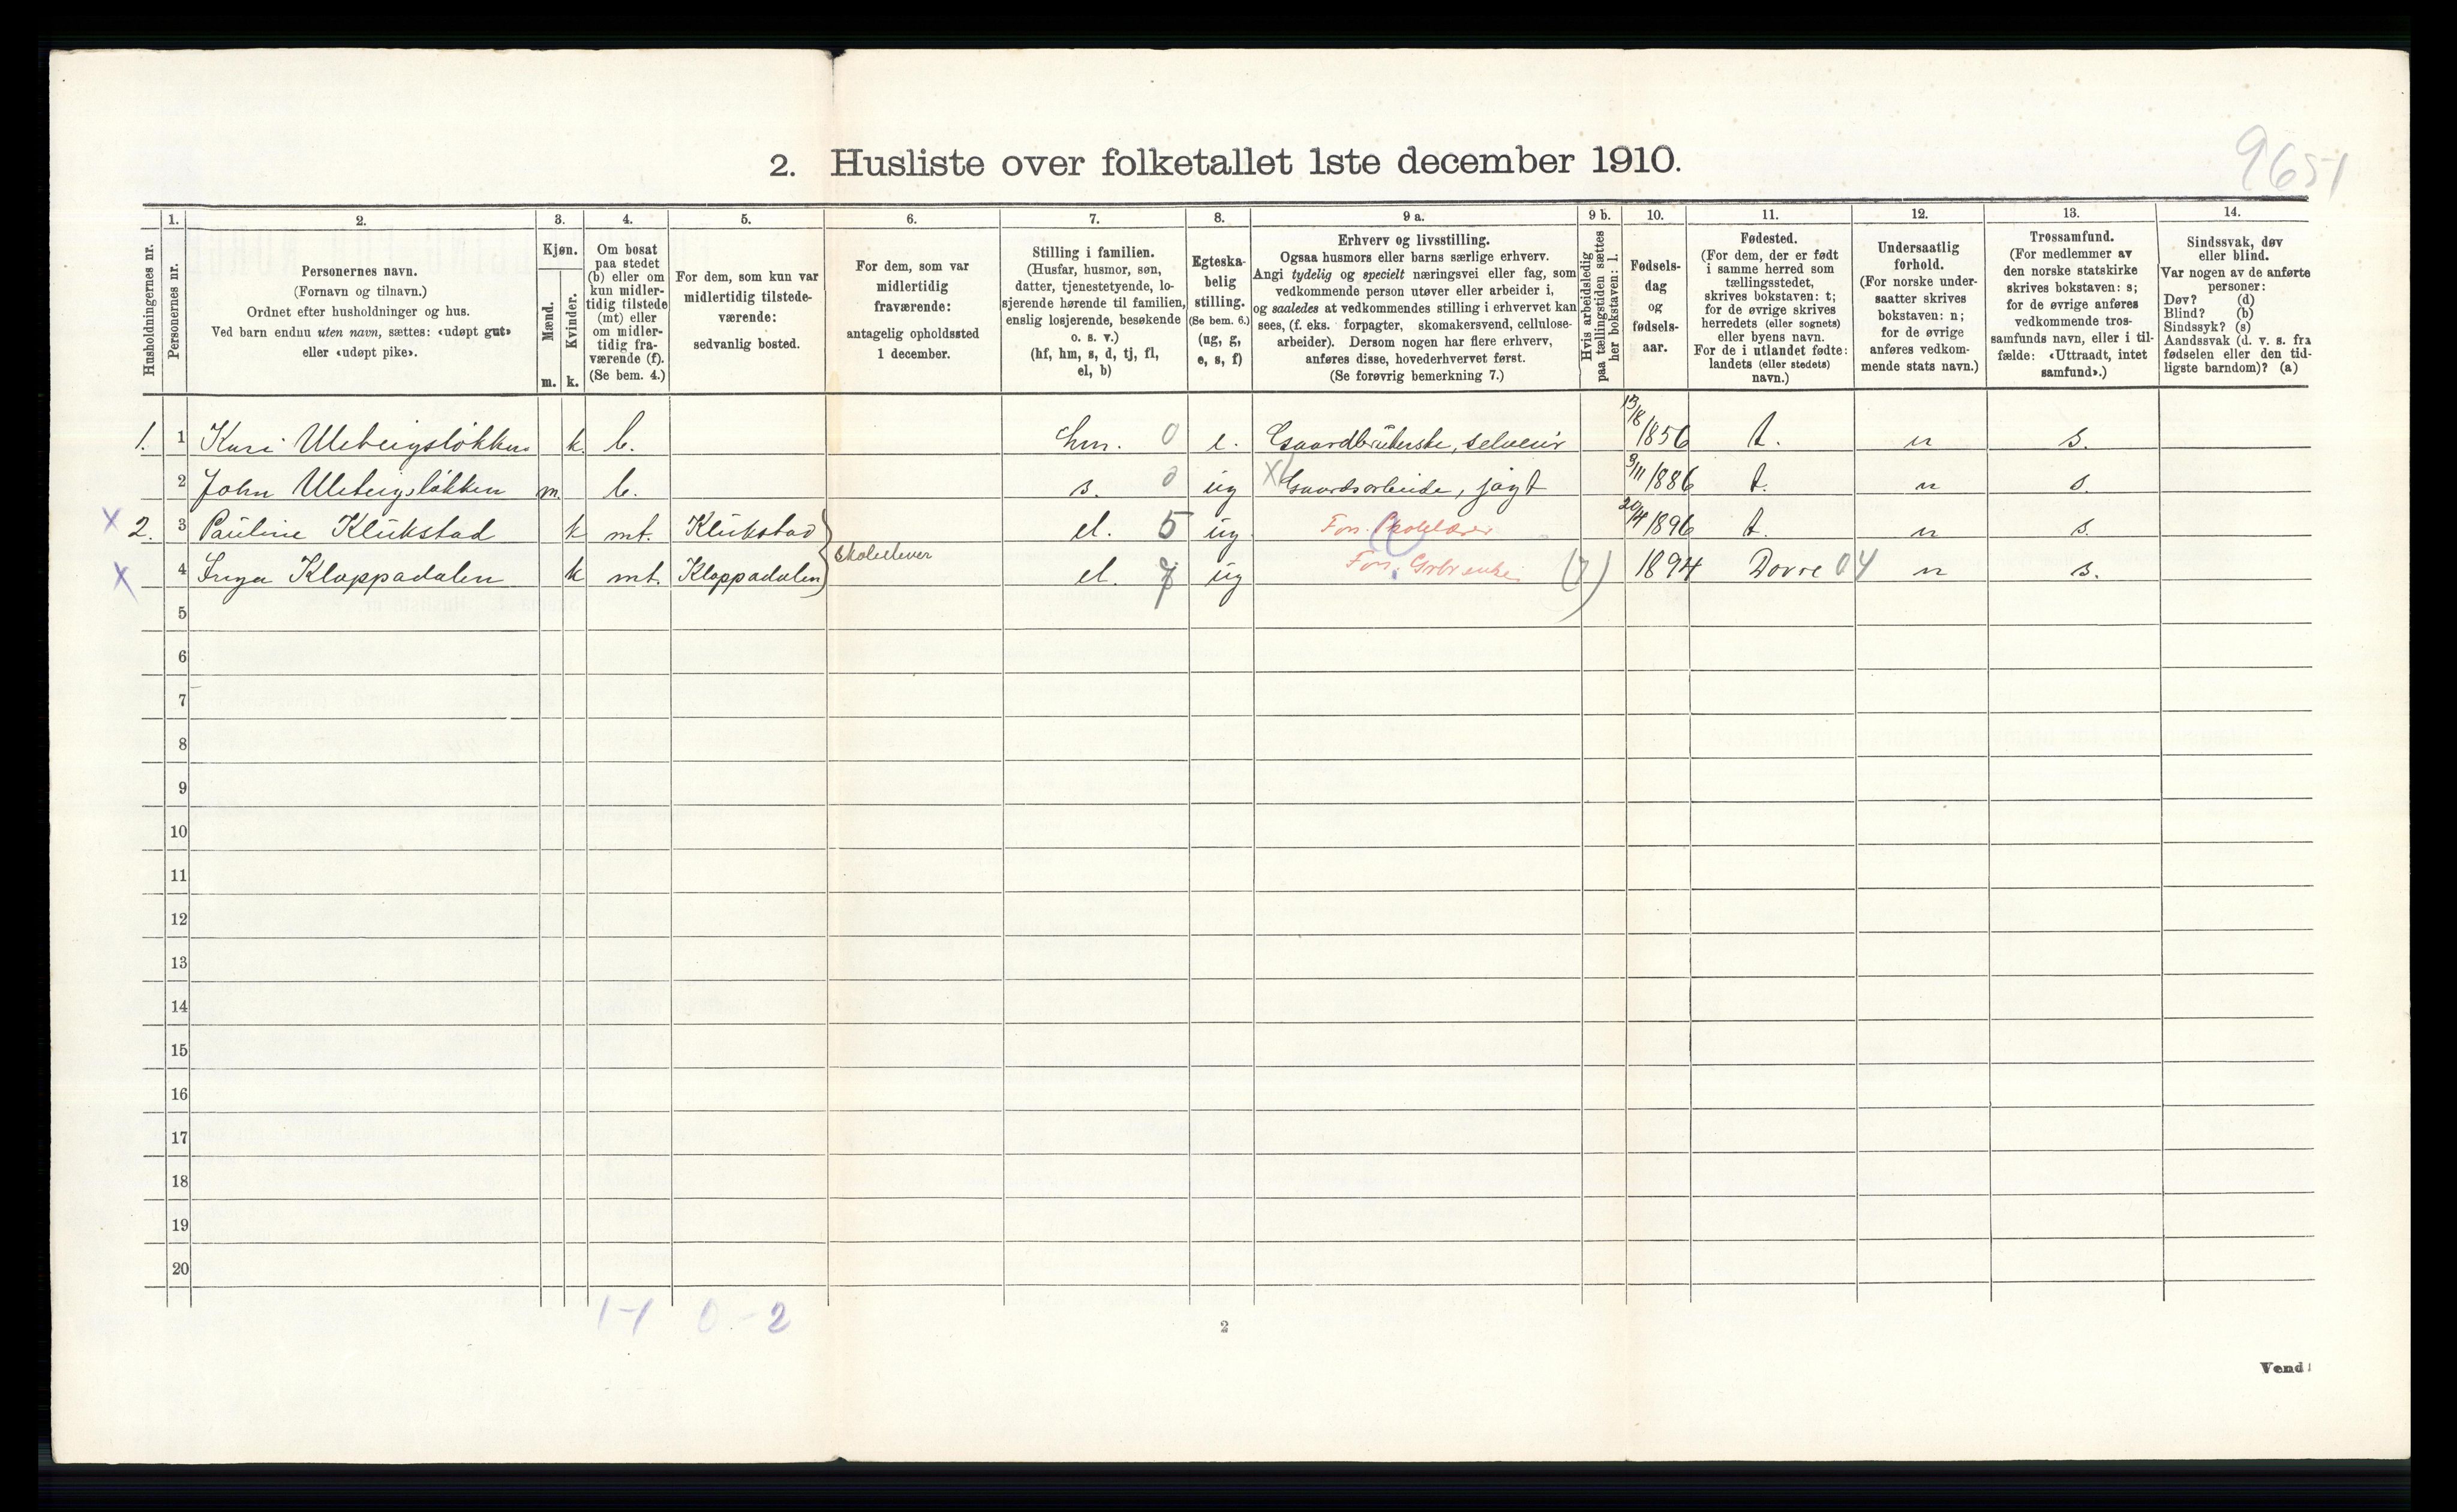 2. Husliste over folketallet 1ste december 1910.
9651
1. 2. 3. 4. 5. 6. 7. 8. 9 a. 9 b. 10. 11. 12. 13. 14.
Husholdningernes nr.
Personernes nr.
Personernes navn.
(Fornavn og tilnavn.)
Ordnet efter husholdninger og hus.
Ved barn endnu uten navn, sættes: «udøpt gut»
eller «udøpt pike».
Kjøn.
Mænd.
Kvinder.
m. k.
Om bosat
paa stedet
(b) eller om
kun midler-
tidig tilstede
(mt) eller
om midler-
tidig fra-
værende (f).
(Se bem. 4.)
For dem, som kun var
midlertidig tilstede-
værende:
sedvanlig bosted.
For dem, som var
midlertidig
fraværende:
antagelig opholdssted
1 december.
Stilling i familien.
(Husfar, husmor, søn,
datter, tjenestetyende, lo-
sjerende hørende til familien,
enslig losjerende, besøkende
o. s. v.)
(hf, hm, s, d, tj, fl,
el, b)
Egteska-
belig
stilling.
(Se bem. 6.)
(ug, g,
e, s, f)
Erhverv og livsstilling.
Ogsaa husmors eller barns særlige erhverv.
Angi tydelig og specielt næringsvei eller fag, som
vedkommende person utøver eller arbeider i,
og saaledes at vedkommendes stilling i erhvervet kan
sees, (f. eks. forpagter, skomakersvend, cellulose-
arbeider). Dersom nogen har flere erhverv,
anføres disse, hovederhvervet først.
(Se forøvrig bemerkning 7.)
Hvis arbeidsledig
paa tællingstiden sættes
her bokstaven: l.
Fødsels-
dag
og
fødsels-
aar.
Fødested.
(For dem, der er født
i samme herred som
tællingsstedet,
skrives bokstaven: t;
for de øvrige skrives
herredets (eller sognets)
eller byens navn.
For de i utlandet fødte:
landets (eller stedets)
navn.)
Undersaatlig
forhold.
(For norske under-
saatter skrives
bokstaven: n;
for de øvrige
anføres vedkom-
mende stats navn.)
Trossamfund.
(For medlemmer av
den norske statskirke
skrives bokstaven: s;
for de øvrige anføres
vedkommende tros-
samfunds navn, eller i til-
fælde: «Uttraadt, intet
samfund».)
Sindssvak, døv
eller blind.
Var nogen av de anførte
personer:
Døv? (d)
Blind? (b)
Sindssyk? (s)
Aandssvak (d. v. s. fra
fødselen eller den tid-
ligste barndom)? (a)
1. 1 Kari Ulebergsløkken k. b. hm. 0 e. Gaardbrukerske, selveier 13/8 1856 t. n s.
2 John Ulebergsløkken m. b. s. 0 ug X Gaardsarbeide, jagt 9/11 1886 t. n s.
X 2. 3 Pauline Klukstad k mt. Klukstad el. 5 ug 20/4 1896 t. n s.
skoleelever
X 4 Inga Kloppadalen k mt. Kloppadalen el. 7 ug (7) 1894 Dovre 04 n s.
5
6
7
8
9
10
11
12
13
14
15
16
17
18
19
20
1-1 0-2
2
Vend!